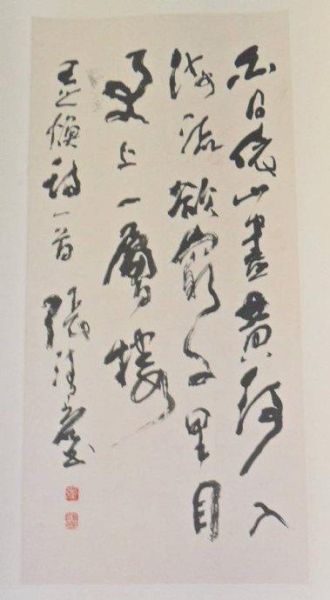 白日依山盡黃河入
海流欲窮千里目
更上一層樓
王之渙詩一首 張